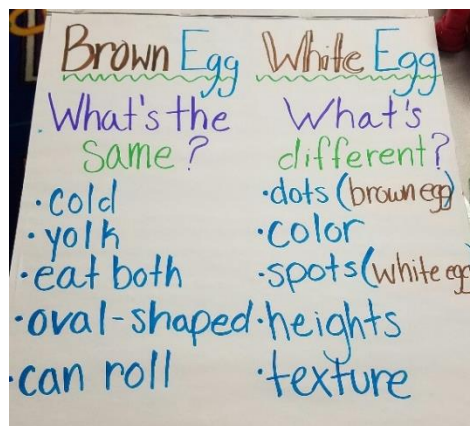 Brown Egg White Egg
What's the
same?
·cold
·yolk
·eat both
·oval-shaped
·can roll
What's
different?
·dots (brown egg)
·color
·spots (white egg
·heights
·texture